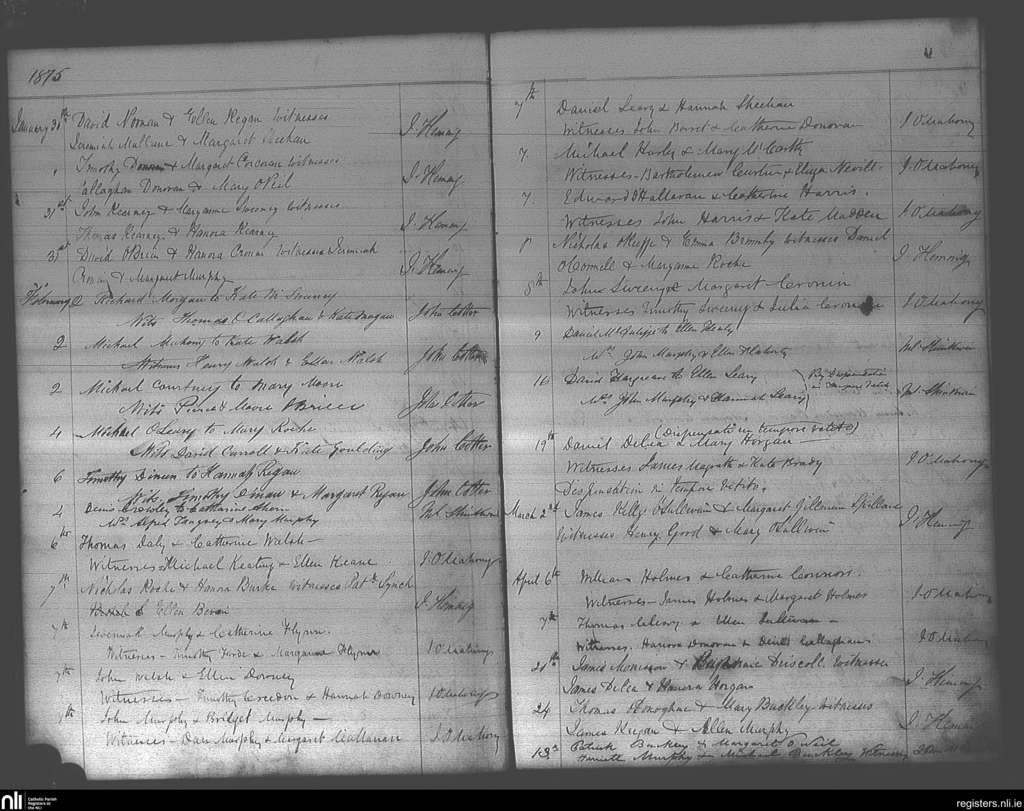 1875
January 31st David Noonan & Ellen Regan Witnesses
Jeremiah Mullane & Margaret Sheehan J. Hennig
Timothy Donovan & Margaret Corcoran Witnesses
Callaghan Donovan & Mary O'Neil J. Hennig
31st John Kearney & Maryanne Sweeney Witnesses
Thomas Kearney & Hanora Kearney J. Hennig
31st David O'Brien & Hanora Cronin Witnesses Jeremiah
Cronin & Margaret Murphy J. Hennig
February 2 Richard Morgan to Kate McSweeney
Wits Thomas O'Callaghan & Kate John Cotter
2 Michael to Kate Walsh
Witnesses Henry Walsh & Ellen Walsh John Cotter
2 Michael Courtney to Mary Moore
Wits Pierce Moore John Cotter
4 Michael O'Leary to Mary Roche
Wits David Carroll & Kate Goulding John Cotter
6 Timothy Dineen to Hannah Regan
Wits. Timothy Dinan & Margaret Regan John Cotter
4 Denis Crowley to Catharine Ahern
Ws. & Mary Murphy
6th Thomas Daly & Catherine Walsh
Witnesses Michael Keating & Ellen Keane J O'Mahony
7th Nicholas Roche & Hanora Burke Witnesses Patk Lynch
& Ellen J. Hennig
7th Jeremiah Murphy & Catherine Flynn
Witnesses - Timothy Forde & Margaret Flynn J O'Mahony
7th John Walsh & Ellen Downey
Witnesses - Timothy Creedon & Hannah Downey J O'Mahony
7th John Murphy & Bridget Murphy
Witnesses - Danl Murphy & Margaret Mullanan J O'Mahony
7th Daniel Leary & Hannah Sheehan
Witnesses John & Catherine Donovan J O'Mahony
7 Michael Hurley & Mary McCarthy
Witnesses - Bartholomew Curtin & Eliza Nevill J O'Mahony
7. Edward O'Halloran & Catherine Harris.
Witnesses John Harris & Kate Madden J O'Mahony
8th Nicholas O'Keeffe & Emma witnesses Daniel
O'Connell & Maryanne Roche J Hennig
8th John Sweeny & Margaret Cronin
Witnesses Timothy Sweeny & Julia Cronin J O'Mahony
9 Daniel to Ellen
Ws. John Murphy & Ellen Flaherty
16 David Hargreave to Ellen Leary
Ws. John Murphy & Hannah Leary
(By Dispensation in tempore vetito)
(Dispensatio in tempore vetito)
19th Daniel Delea & Mary Horgan
Witnesses James Magrath & Kate Brady J O'Mahony
Dispensation in tempore vetito.
March 2nd James Kelly O'Sullivan & Margaret Spillane
Witnesses Henry Good & Mary O'Sullivan J. Hennig
April 6th William Holmes & Catherine Connors.
Witnesses - James Holmes & Margaret Holmes J O'Mahony
7th Thomas & Ellen Sullivan
Witnesses. Hanora Donovan & Denis Callaghan J O'Mahony
20th James Morrisson & Driscoll Witnesses
James Delea & Hanora Horgan J. Hennig
24 Thomas O'Donoghue & Mary Buckley Witnesses
James Regan & Ellen Murphy J. Hennig
13th Patrick Buckley & Margaret O'Neil
Murphy & Michael Buckley Witnesses
nli Catholic Parish Registers at the NLI
registers.nli.ie